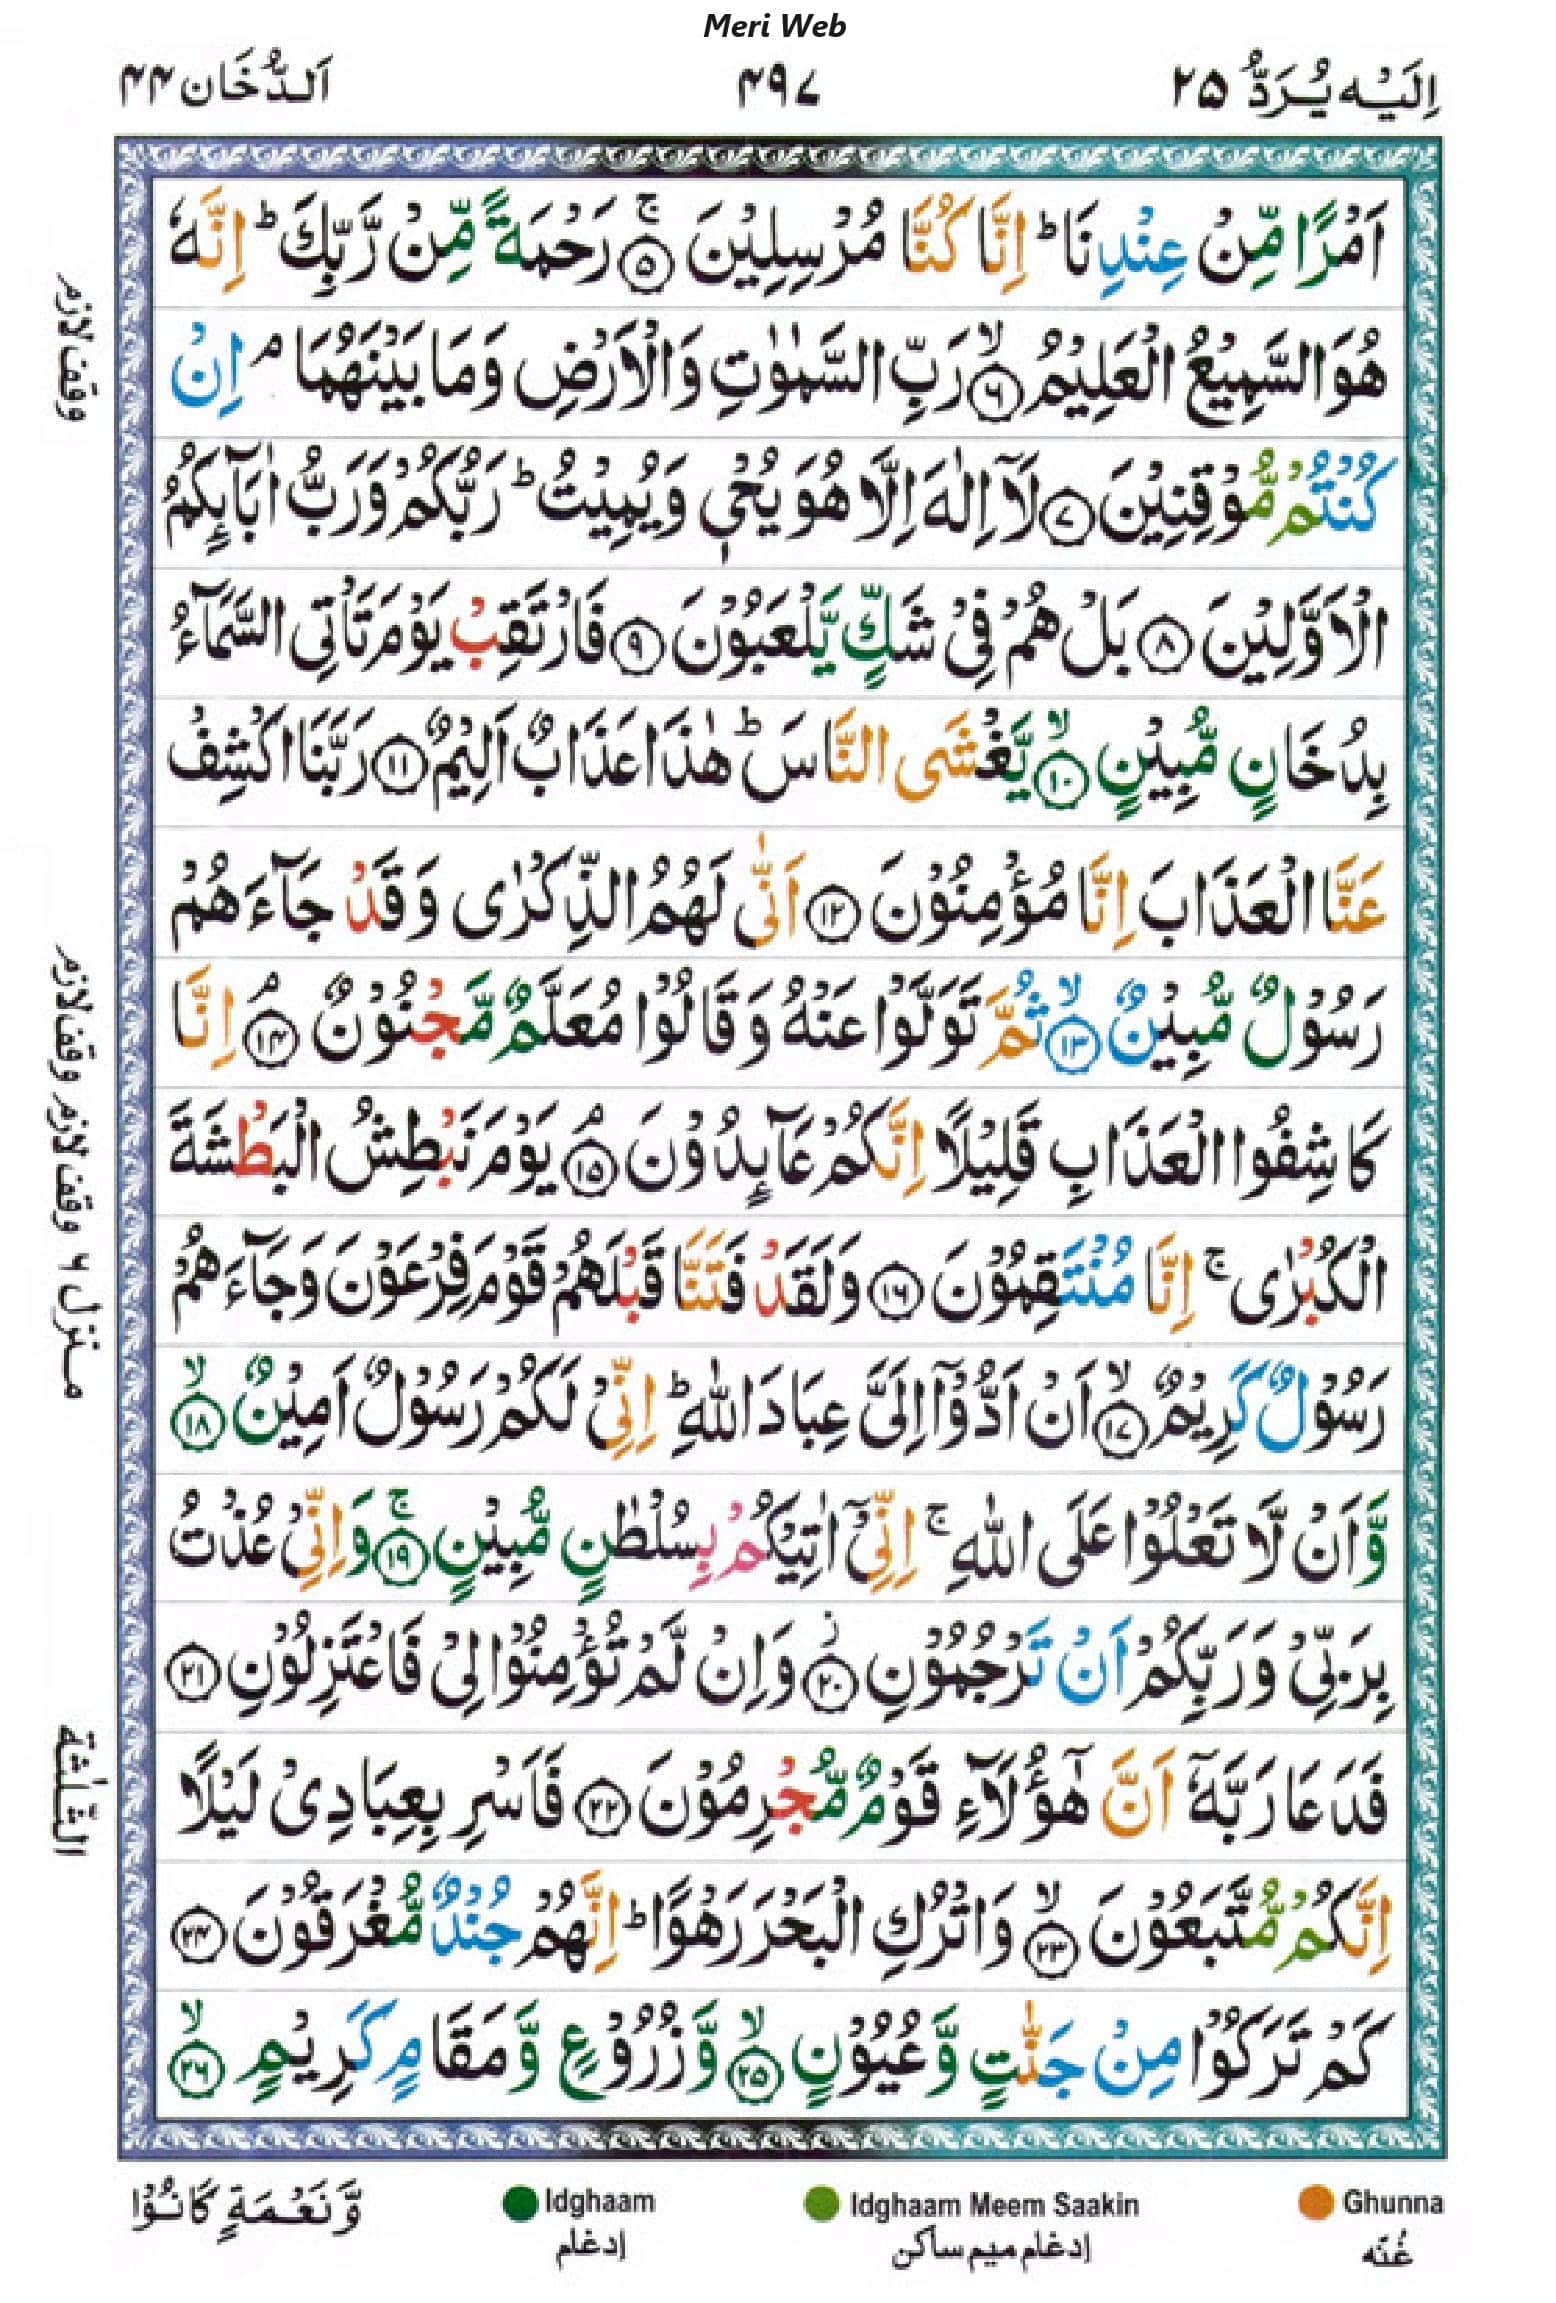 Meri Web
اِلَيْهِ يُرَدُّ ٢٥
٤٩٧
اَلدُّخَان ٤٤
اَمْرًا مِّنْ عِنْدِنَا ؕ اِنَّا كُنَّا مُرْسِلِيْنَ ۚ ﴿٥﴾ رَحْمَةً مِّنْ رَّبِّكَ ؕ اِنَّهٗ
هُوَ السَّمِيْعُ الْعَلِيْمُ ۙ ﴿٦﴾ رَبِّ السَّمٰوٰتِ وَالْاَرْضِ وَمَا بَيْنَهُمَا ۘ اِنْ
كُنْتُمْ مُّوْقِنِيْنَ ﴿٧﴾ لَاۤ اِلٰهَ اِلَّا هُوَ يُحْيٖ وَيُمِيْتُ ؕ رَبُّكُمْ وَرَبُّ اٰبَآئِكُمُ
الْاَوَّلِيْنَ ﴿٨﴾ بَلْ هُمْ فِيْ شَكٍّ يَّلْعَبُوْنَ ﴿٩﴾ فَارْتَقِبْ يَوْمَ تَاْتِي السَّمَآءُ
بِدُخَانٍ مُّبِيْنٍ ۙ ﴿١٠﴾ يَّغْشَى النَّاسَ ؕ هٰذَا عَذَابٌ اَلِيْمٌ ﴿١١﴾ رَبَّنَا اكْشِفْ
عَنَّا الْعَذَابَ اِنَّا مُؤْمِنُوْنَ ﴿١٢﴾ اَنّٰى لَهُمُ الذِّكْرٰى وَقَدْ جَآءَهُمْ
رَسُوْلٌ مُّبِيْنٌ ۙ ﴿١٣﴾ ثُمَّ تَوَلَّوْا عَنْهُ وَقَالُوْا مُعَلَّمٌ مَّجْنُوْنٌ ۘ ﴿١٤﴾ اِنَّا
كَاشِفُوا الْعَذَابِ قَلِيْلًا اِنَّكُمْ عَآئِدُوْنَ ۘ ﴿١٥﴾ يَوْمَ نَبْطِشُ الْبَطْشَةَ
الْكُبْرٰى ۚ اِنَّا مُنْتَقِمُوْنَ ﴿١٦﴾ وَلَقَدْ فَتَنَّا قَبْلَهُمْ قَوْمَ فِرْعَوْنَ وَجَآءَهُمْ
رَسُوْلٌ كَرِيْمٌ ۙ ﴿١٧﴾ اَنْ اَدُّوْۤا اِلَيَّ عِبَادَ اللّٰهِ ؕ اِنِّيْ لَكُمْ رَسُوْلٌ اَمِيْنٌ ۙ ﴿١٨﴾
وَّاَنْ لَّا تَعْلُوْا عَلَى اللّٰهِ ۚ اِنِّيْۤ اٰتِيْكُمْ بِسُلْطٰنٍ مُّبِيْنٍ ۚ ﴿١٩﴾ وَاِنِّيْ عُذْتُ
بِرَبِّيْ وَرَبِّكُمْ اَنْ تَرْجُمُوْنِ ؗ ﴿٢٠﴾ وَاِنْ لَّمْ تُؤْمِنُوْا لِيْ فَاعْتَزِلُوْنِ ﴿٢١﴾
فَدَعَا رَبَّهٗۤ اَنَّ هٰۤؤُلَآءِ قَوْمٌ مُّجْرِمُوْنَ ﴿٢٢﴾ فَاَسْرِ بِعِبَادِيْ لَيْلًا
اِنَّكُمْ مُّتَّبَعُوْنَ ۙ ﴿٢٣﴾ وَاتْرُكِ الْبَحْرَ رَهْوًا ؕ اِنَّهُمْ جُنْدٌ مُّغْرَقُوْنَ ﴿٢٤﴾
كَمْ تَرَكُوْا مِنْ جَنّٰتٍ وَّعُيُوْنٍ ۙ ﴿٢٥﴾ وَّزُرُوْعٍ وَّمَقَامٍ كَرِيْمٍ ۙ ﴿٢٦﴾
وقف لازم
منزل ٦ وقف لازم وقف لازم
الثلٰثة
وَّنَعْمَةٍ كَانُوْا
Idghaam
إدغام
Idghaam Meem Saakin
إدغام ميم ساكن
Ghunna
غُنّه